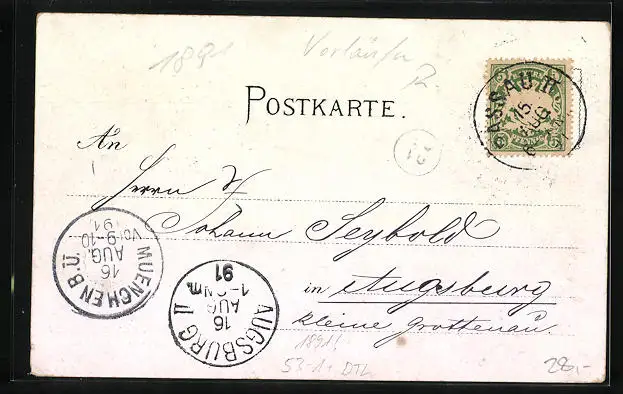 1891 Vorläufer
POSTKARTE.
PASSAU II.
15
AUG
An
21
Herrn
Johann Seybold
in Augsburg
kleine Grottenau.
MUENCHEN B.Ü.
VOR 9-10
16
AUG.
91
AUGSBURG II
1-2 Nm.
16
AUG
91
1891!
53-1+ DTL
28,-